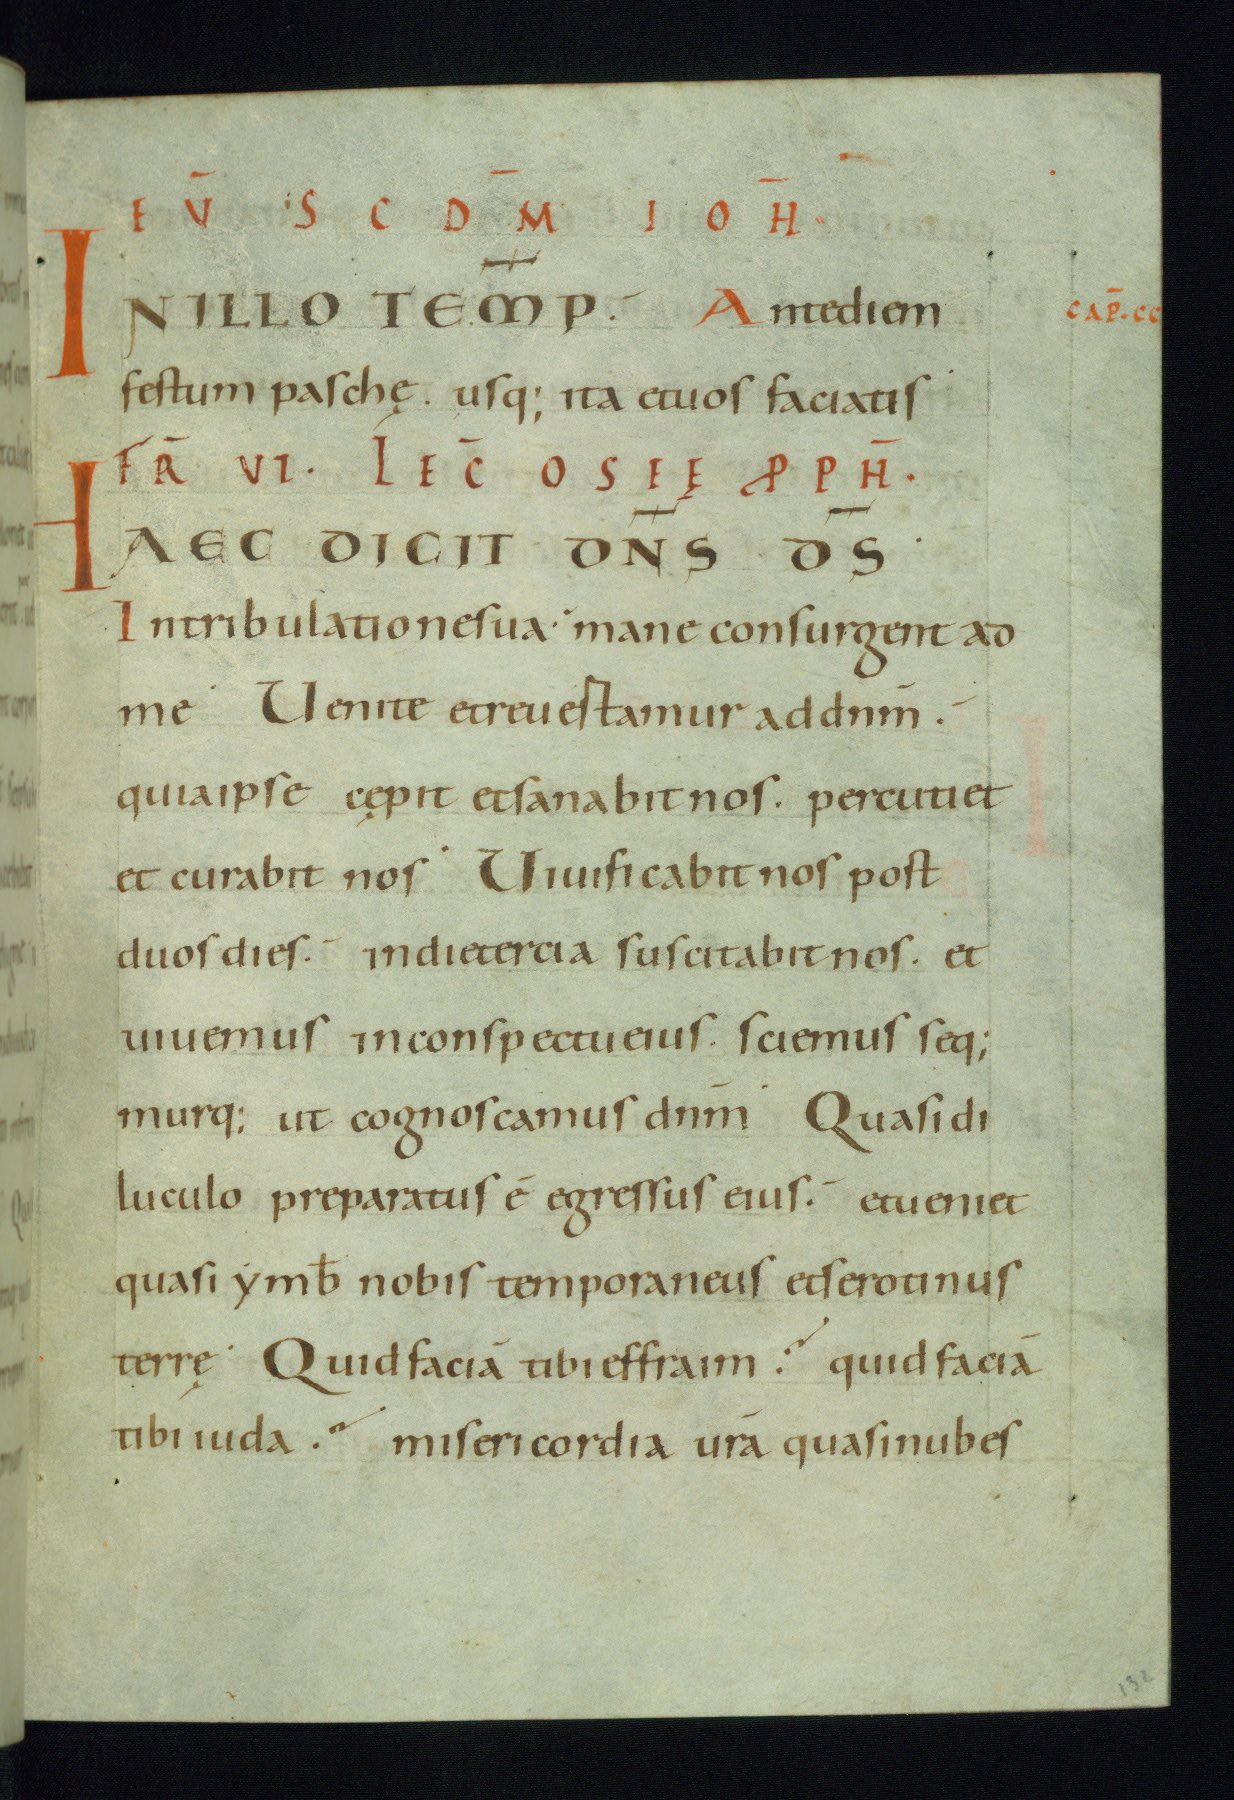 EV̄ SCDM̄ IOH̄.
INILLO TEM̄P. Antediem
CAP̄. CC
festum paschę. usq; ita etuos faciatis
FR̄ VI. LEC̄ OSEĘ PPH̄.
HAEC DICIT DN̄S DS̄.
Intribulationesua. mane consurgent ad
me. Uenite etreuestamur addnm̄.
quiaipse cępit etsanabitnos. percutiet
et curabit nos. Uiuificabitnos post
duosdies. indietercia suscitabitnos. et
uiuemus inconspectueius. sciemus seq;
murq; ut cognoscamus dnm̄. Quasi di
luculo preparatus ē egressus eius. etueniet
quasi ẏmb̄ nobis temporaneus etserotinus
terrę. Quidfaciā tibieffraim.? quidfaciā
tibiiuda.? misericordia urā quasinubes
132